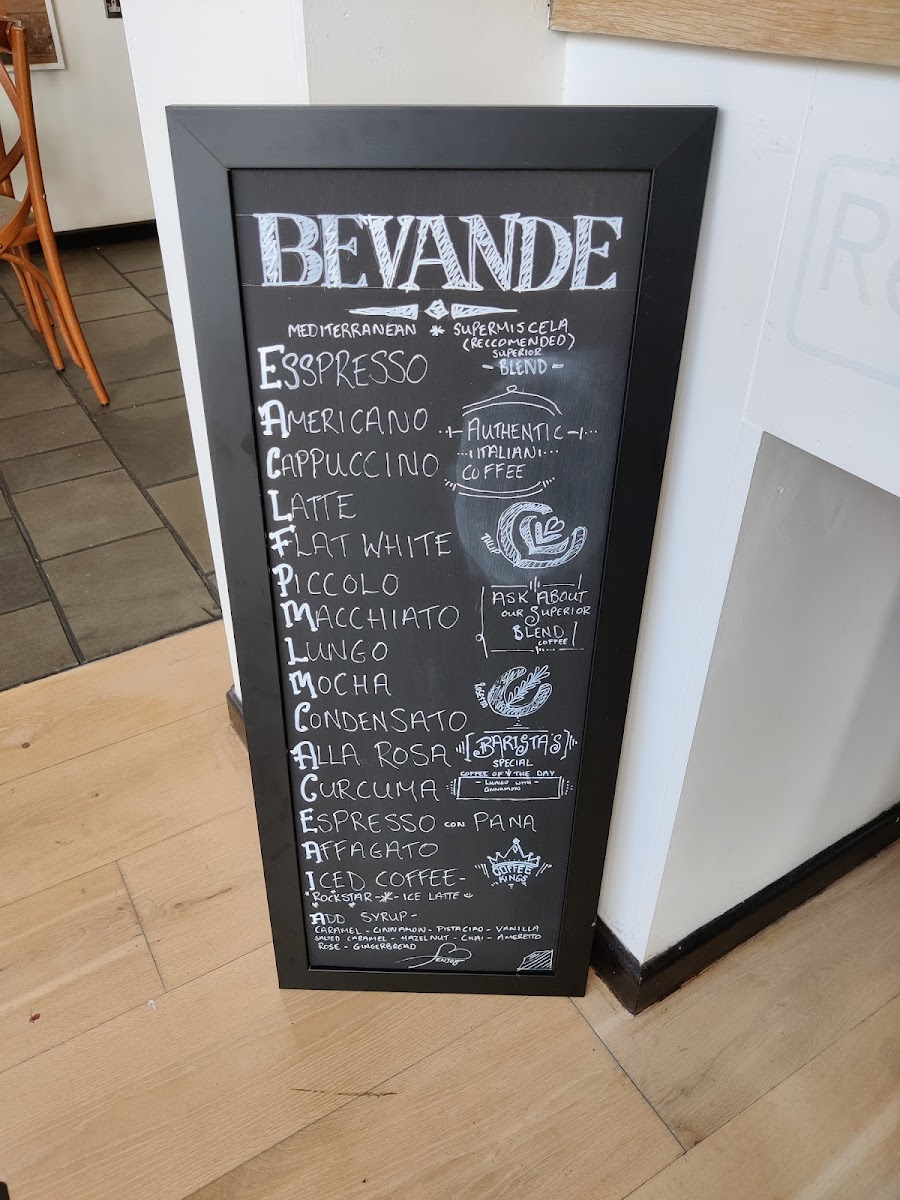 BEVANDE
MEDITERRANEAN * SUPERMISCELA
(RECCOMENDED)
SUPERIOR
- BLEND -
ESSPRESSO
AMERICANO
AUTHENTIC
ITALIAN
COFFEE
CAPPUCCINO
LATTE
FLAT WHITE
TULIP
PICCOLO
ASK ABOUT
OUR SUPERIOR
BLEND
COFFEE
MACCHIATO
LUNGO
MOCHA
CONDENSATO
ALLA ROSA
BARISTA'S
SPECIAL
COFFEE OF THE DAY
- LUNGO WITH -
CINNAMON
CURCUMA
ESPRESSO CON PANA
AFFAGATO
COFFEE
KINGS
ICED COFFEE-
ROCKSTAR - * - ICE LATTE
ADD SYRUP-
CARAMEL - CINNAMON - PISTACIAO - VANILLA
SALTED CARAMEL - HAZELNUT - CHAI - AMERETTO
ROSE - GINGERBREAD
ENJOY